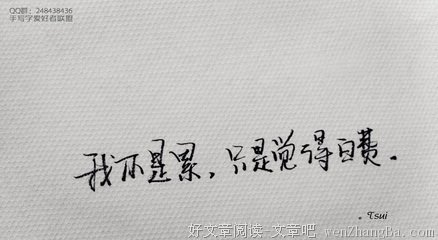 QQ群：248438436
手写字爱好者联盟
我不是累，只是觉得白费。
。Tsui
好文章阅读-文章吧 wenZhangBa.com